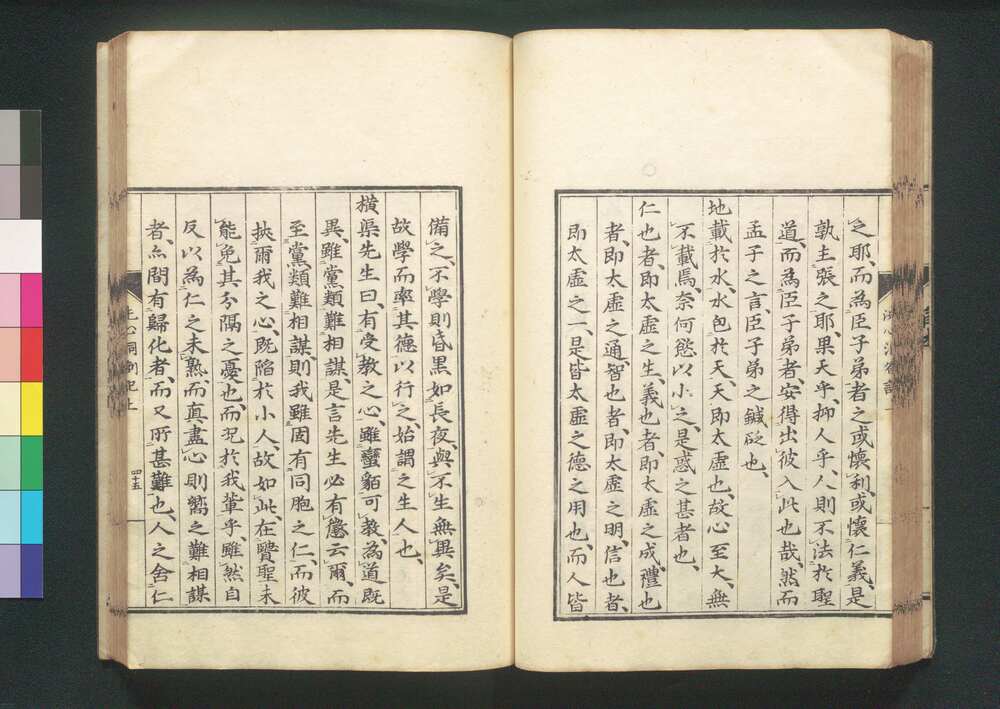 之耶、而為臣子弟者之或懷利、或懷仁義、是
孰主張之耶、果天乎、抑人乎、人則不法於聖
道、而為臣子弟者、安得出彼入此也哉、然而
孟子之言、臣子弟之鍼砭也、
地載於水、水包於天、天即太虛也、故心至大、無
不載焉、奈何慾以小之、是惑之甚者也、
仁也者、即太虛之生、義也者、即太虛之成、禮也
者、即太虛之通、智也者、即太虛之明、信也者、
即太虛之一、是皆太虛之德之用也、而人皆
備之、不學則昏黑如長夜、與不生無異矣、是
故學而率其德以行之、始謂之生人也、
橫渠先生曰、有受教之心、雖蠻貊可教、為道既
異、雖黨類難相謀、是言先生必有為云爾、而
至黨類難相謀、則我雖固有同胞之仁、而彼
挾爾我之心、既陷於小人、故如此、在賢聖未
能免其分隔之憂也、而況於我輩乎、雖然自
反以為仁之未熟、而真盡心則嚮之難相謀
者、亦間有歸化者、而又所甚難也、人之舍仁
洗心洞劄記上
四十五